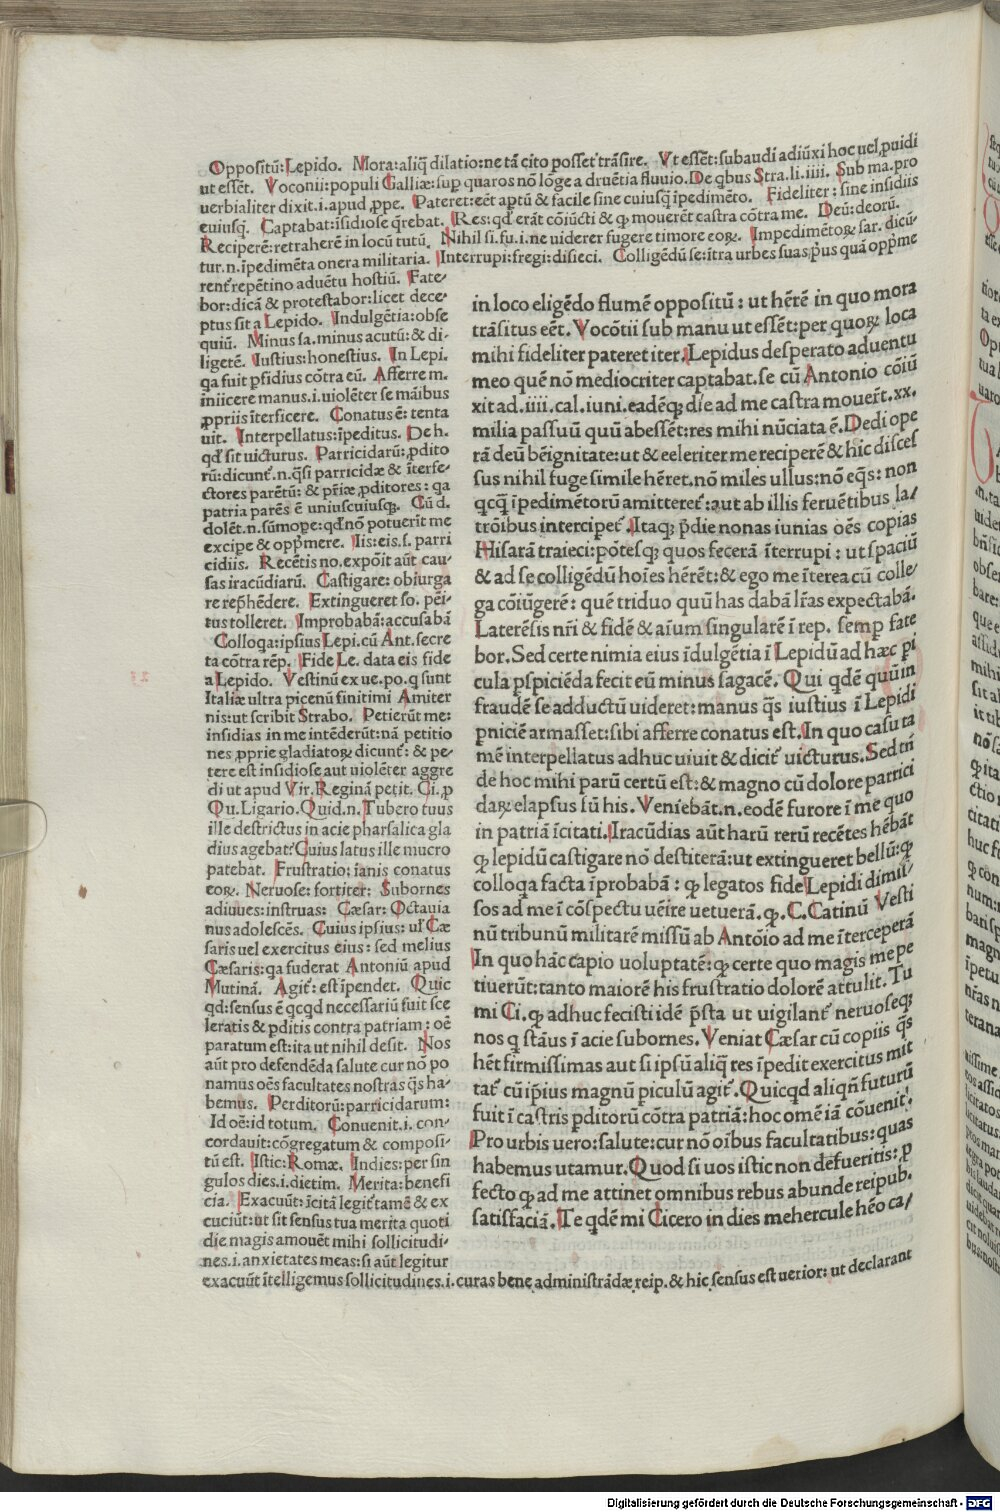 Oppositū: Lepido. Mora: aliq̄ dilatio: ne tā cito posset trāsire. Vt essēt: subaudi adiūxi hoc uel ꝓuidi
ut essēt. Voconii: populi Galliæ: sup quaros nō lōge a druētia fluuio. De qbus Stra. li. iiii. Sub ma. pro
uerbialiter dixit. i. apud ꝓpe. Pateret: eēt aptū & facile sine cuiusq̄ īpedimēto. Fideliter: sine insidiis
cuiusq̄. Captabat: īsidiose q̄rebat. Res: qd̄ erāt cōiūcti & ꝙ mouerēt castra cōtra me. Deū: deorū.
Reciperē: retraherē in locū tutū. Nihil si. fu. i. ne uiderer fugere timore eoꝝ. Impedimētoꝝ sar. dicū
tur. n. īpedimēta onera militaria. Interrupi: fregi: disieci. Colligēdū se: ītra urbes suas p̄us quā opp̄me
rent᷑ repētino aduētu hostiū. Fate-
bor: dicā & protestabor: licet dece-
ptus sit a Lepido. Indulgētia: obse
quiū. Minus sa. minus acutū: & di-
ligetē. Iustius: honestius. In Lepi.
qa fuit p̄sidius cōtra eū. Afferre m.
iniicere manus. i. uiolēter se māibus
ꝓpriis īterficere. Conatus ē: tenta
uit. Interpellatus: īpeditus. De h.
qd̄ sit uicturus. Parricidarū: ꝓdito
rū: dicunt᷑. n. q̄si parricidæ & īterfe-
ctores parētū: & p̄riæ ꝓditores: qa
patria parēs ē uniuscuiusq̄. Cū d.
dolēt. n. sūmope: qd̄ nō potuerit me
excipe & opp̄mere. Iis: eis. s. parri
cidiis. Recētis no. expōit aūt cau-
sas iracūdiarū. Castigare: obiurga
re rep̄hēdere. Extingueret so. pēi-
tus tolleret. Improbabā: accusabā
Colloqa: ipsius Lepi. cū Ant. secre
ta cōtra rēp. Fide Le. data eis fide
a Lepido. Vestinū ex ue. po. q sunt
Italiæ ultra picenū finitimi Amiter
nis: ut scribit Strabo. Petierūt me:
insidias in me intēderūt: nā petitio
nes ꝓprie gladiatoꝝ dicunt᷑: & pe-
tere est insidiose aut uiolēter aggre
di ut apud Vir. Reginā petit. Ci. ꝓ
Qu. Ligario. Quid. n. Tubero tuus
ille destrictus in acie pharsalica gla
dius agebat? Cuius latus ille mucro
patebat. Frustratio: īanis conatus
eoꝝ. Neruose: fortiter: Subornes
adiuues: instruas: Cæsar: Octauia
nus adolescēs. Cuius ipsius: ul᷑ Cæ
saris uel exercitus eius: sed melius
Cæsaris: qa fuderat Antoniū apud
Mutinā. Agit᷑: est īpendet. Quic
qd: sensus ē qcqd necessariū fuit sce
leratis & pditis contra patriam: oē
paratum est: ita ut nihil desit. Nos
aūt pro defendēda salute cur nō po
namus oēs facultates nostras q̄s ha-
bemus. Perditorū: parricidarum:
Id oē: id totum. Conuenit. i. con-
cordauit: cōgregatum & composi-
tū est. Istic: Romæ. Indies: per sin
gulos dies. i. dietim. Merita: benefi
cia. Exacuūt: īcitā legit᷑ tamē & ex
cuciūt: ut sit sensus tua merita quoti
die magis amouēt mihi sollicitudi-
nes. i. anxietates meas: si aūt legitur
exacuūt ītelligemus sollicitudines. i. curas bene administrādæ reip. & hic sensus est uerior: ut declarant
in loco eligēdo flumē oppositū: ut hērē in quo mora
trāsitus eēt. Vocōtii sub manu ut essēt: per quoꝝ loca
mihi fideliter pateret iter. Lepidus desperato aduentu
meo quē nō mediocriter captabat. se cū Antonio cōiū
xit ad. iiii. cal. iuni. eadēq; die ad me castra mouert᷑. xx.
milia passuū quū abessēt: res mihi nūciata ē. Dedi ope
rā deū bēignitate: ut & celeriter me reciperē & hic disces
sus nihil fuge simile hēret. nō miles ullus: nō eq̄s: non
qcq̄ īpedimētorū amitteret᷑: aut ab illis feruētibus la-
trōibus intercipet᷑. Itaq; p̄die nonas iunias oēs copias
Hisarā traieci: pōtesq; quos fecerā īterrupi: ut spaciū
& ad se colligēdū hoīes hērēt: & ego me īterea cū colle-
ga cōiūgerē: quē triduo quū has dabā l̄ras expectabā.
Laterēsis nr̄i & fidē & aīum singularē ī rep. semp fate
bor. Sed certe nimia eius īdulgētia ī Lepidū ad hæc pi
cula pspiciēda fecit eū minus sagacē. Qui qdē quū in
fraudē se adductū uideret: manus q̄s iustius ī Lepidi
pniciē armasset: sibi afferre conatus est. In quo casu ta
mē interpellatus adhuc uiuit & dicit᷑ uicturus. Sed tn̄
de hoc mihi parū certū est: & magno cū dolore patrici
daꝝ elapsus sū his. Veniebāt. n. eodē furore ī me quo
in patriā īcitati. Iracūdias aūt harū rerū recētes hēbāt
ꝙ lepidū castigare nō destiterā: ut extingueret bellū: ꝙ
colloqa facta īprobabā: ꝙ legatos fide Lepidi dimis-
sos ad me ī cōspectu uēire uetuerā. ꝙ. C. Catinū Vesti
nū tribunū militarē missū ab Antōio ad me ītercēperā
In quo hāc capio uoluptatē: ꝙ certe quo magis me pe
tiuerūt: tanto maiorē his frustratio dolorē attulit. Tu
mi Ci. ꝙ adhuc fecisti idē p̄sta ut uigilant᷑ neruoseq;
nos q stāus ī acie subornes. Veniat Cæsar cū copiis q̄s
hēt firmissimas aut si ipsū aliq̄ res īpedit exercitus mit
tat᷑ cū ip̄ius magnū piculū agit᷑. Quicqd aliqn̄ futurū
fuit ī castris pditorū cōtra patriā: hoc omē iā cōuenit.
Pro urbis uero: salute: cur nō oībus facultatibus: quas
habemus utamur. Quod si uos istic non defueritis: ꝓ
fecto ꝙ ad me attinet omnibus rebus abunde reipub.
satisfaciā. Te qdē mi Cicero in dies mehercule hēo ca-
Digitalisierung gefördert durch die Deutsche Forschungsgemeinschaft - DFG